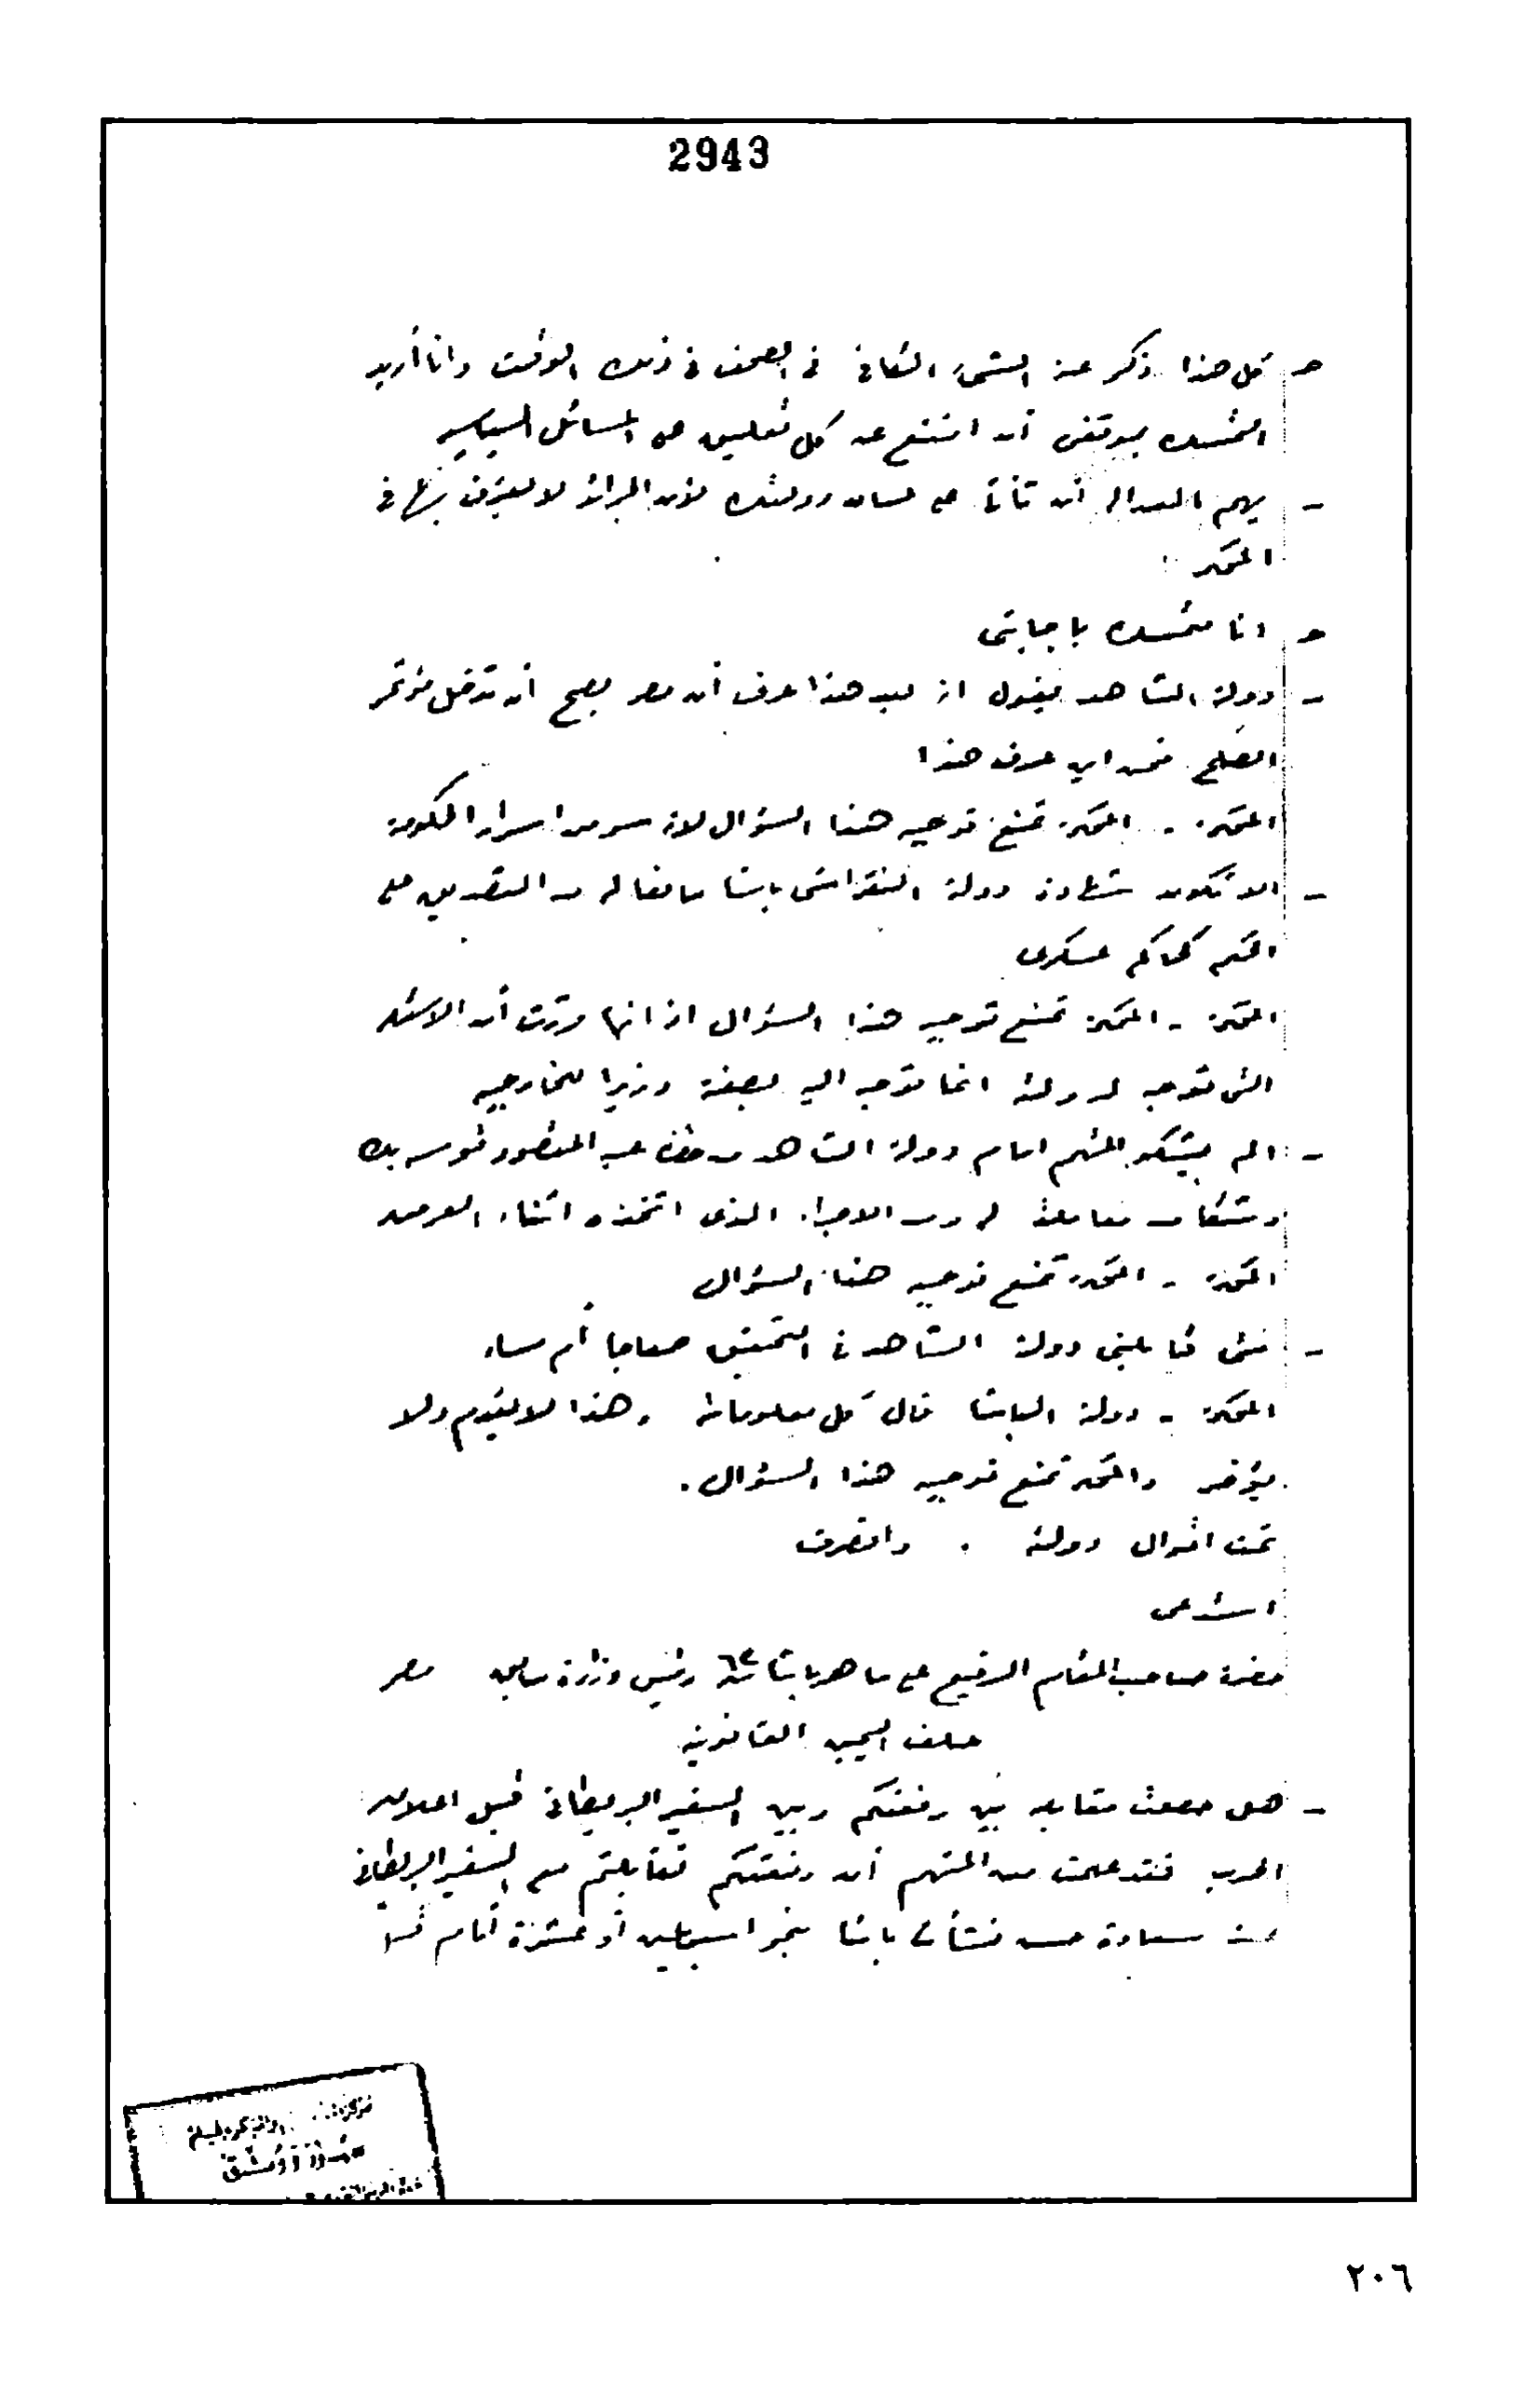 2943
ج كل هذا ذكر عنه الشىء الكافى فى الصحف فى ذلك الوقت وانا أريد
التمسك بموقفى أن امتنع عن كل تعليق على المسائل السياسيه
- يهم العداله أن تأتى على لسان دولتك لأن الجرائد لا يعترف بها فى
المحكمه
ج انا متمسك باجابتى
- دولة الشاهد يقول انه بعد هذا عرف أن مصر يصح أن تدخل مؤتمر
الصلح فمن اين عرف هذا
المحكمة - المحكمة تمنع توجيه هذا السؤال لانه سر من اسرار الحكومة
- الا تكون شهادة دولة النقراشى باشا مانعا له من التصديق على
الحكم كحاكم عسكرى
المحكمة - المحكمة تمنع توجيه هذا السؤال اذ انها قررت أن الاسئله
التى توجه لدولته انما توجه اليه بصفته وزيرا للخارجيه
- الم يشكو المتهم امام دولة الشاهد من حضرة عبد المقصود فهمى بك
وشكا من معاملته له ومن الاجراء الذى اتخذه اثناء العرض
المحكمة - المحكمة تمنع توجيه هذا السؤال
- متى قابلنى دولة الشاهد فى التحقيق صباحا أم مساء
المحكمة - دولة الباشا قال كل معلوماته وهذا لا يقدم ولا
يؤخر والمحكمة تمنع توجيه هذا السؤال .
تمت اقوال دولته . وانصرف
استدعى
حضرة صاحب المقام الرفيع على ماهر باشا ٦٤ سنه رئيس وزارة سابق مصر
حلف اليمين القانونيه
- هل حصلت مقابله بين رفعتكم وبين السفير البريطانى قبل اعلان
الحرب فقد علمت من المتهم أن رفعتكم تقابلتم مع السفير البريطانى
عند سعادة حسن نشأت باشا
٢٠٦